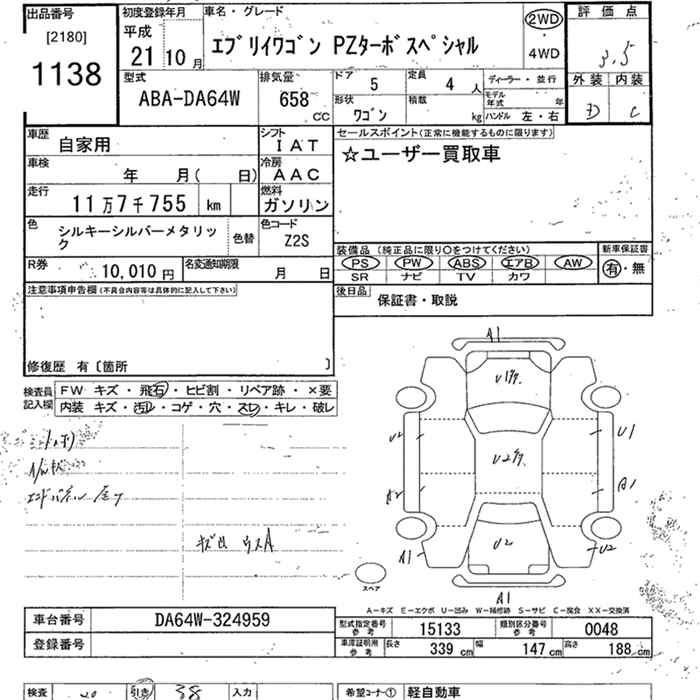 出品番号 初度登録年月 車名・グレード 評価点
[2180] 平成 エブリイワゴン PZターボスペシャル 2WD・4WD 3.5
1138 21年10月
型式 排気量 ドア 5 定員 4人 ディーラー・並行 外装 内装
ABA-DA64W 658cc 形状 ワゴン 積載 kg モデル年式 年 ハンドル 左・右 D C
車歴 自家用 シフト IAT セールスポイント(正常に機能するものに限ります)
車検 年 月( 日) 冷房 AAC ☆ユーザー買取車
走行 11万7千755 km 燃料 ガソリン
色 シルキーシルバーメタリック 色替 色コード Z2S
装備品(純正品に限り○をつけてください) 新車保証書
R券 10,010円 名変通知期限 月 日 PS PW ABS エアB AW 有・無
SR ナビ TV カワ
注意事項申告欄(不具合内容等は具体的に記入して下さい) 後日品 保証書・取説
修復歴 有〔箇所 〕
検査員記入欄 FW キズ・飛石・ヒビ割・リペア跡・×要
内装 キズ・汚レ・コゲ・穴・スレ・キレ・破レ
A1
U1
U2 U2 U1
A2 A1
A1 U2 U2
スペア A1
A-キズ E-エクボ U-凹み W-補修跡 S-サビ C-腐食 XX-交換済
車台番号 DA64W-324959 型式指定番号参考 15133 類別区分番号参考 0048
登録番号 車庫証明用参考 長さ 339cm 幅 147cm 高さ 188cm
検査 20 引き 38 入力 希望コーナー① 軽自動車